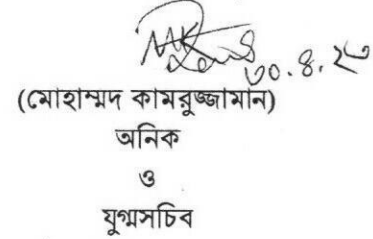 ৩০.৪.২৩
(মোহাম্মদ কামরুজ্জামান)
অনিক
ও
যুগ্মসচিব